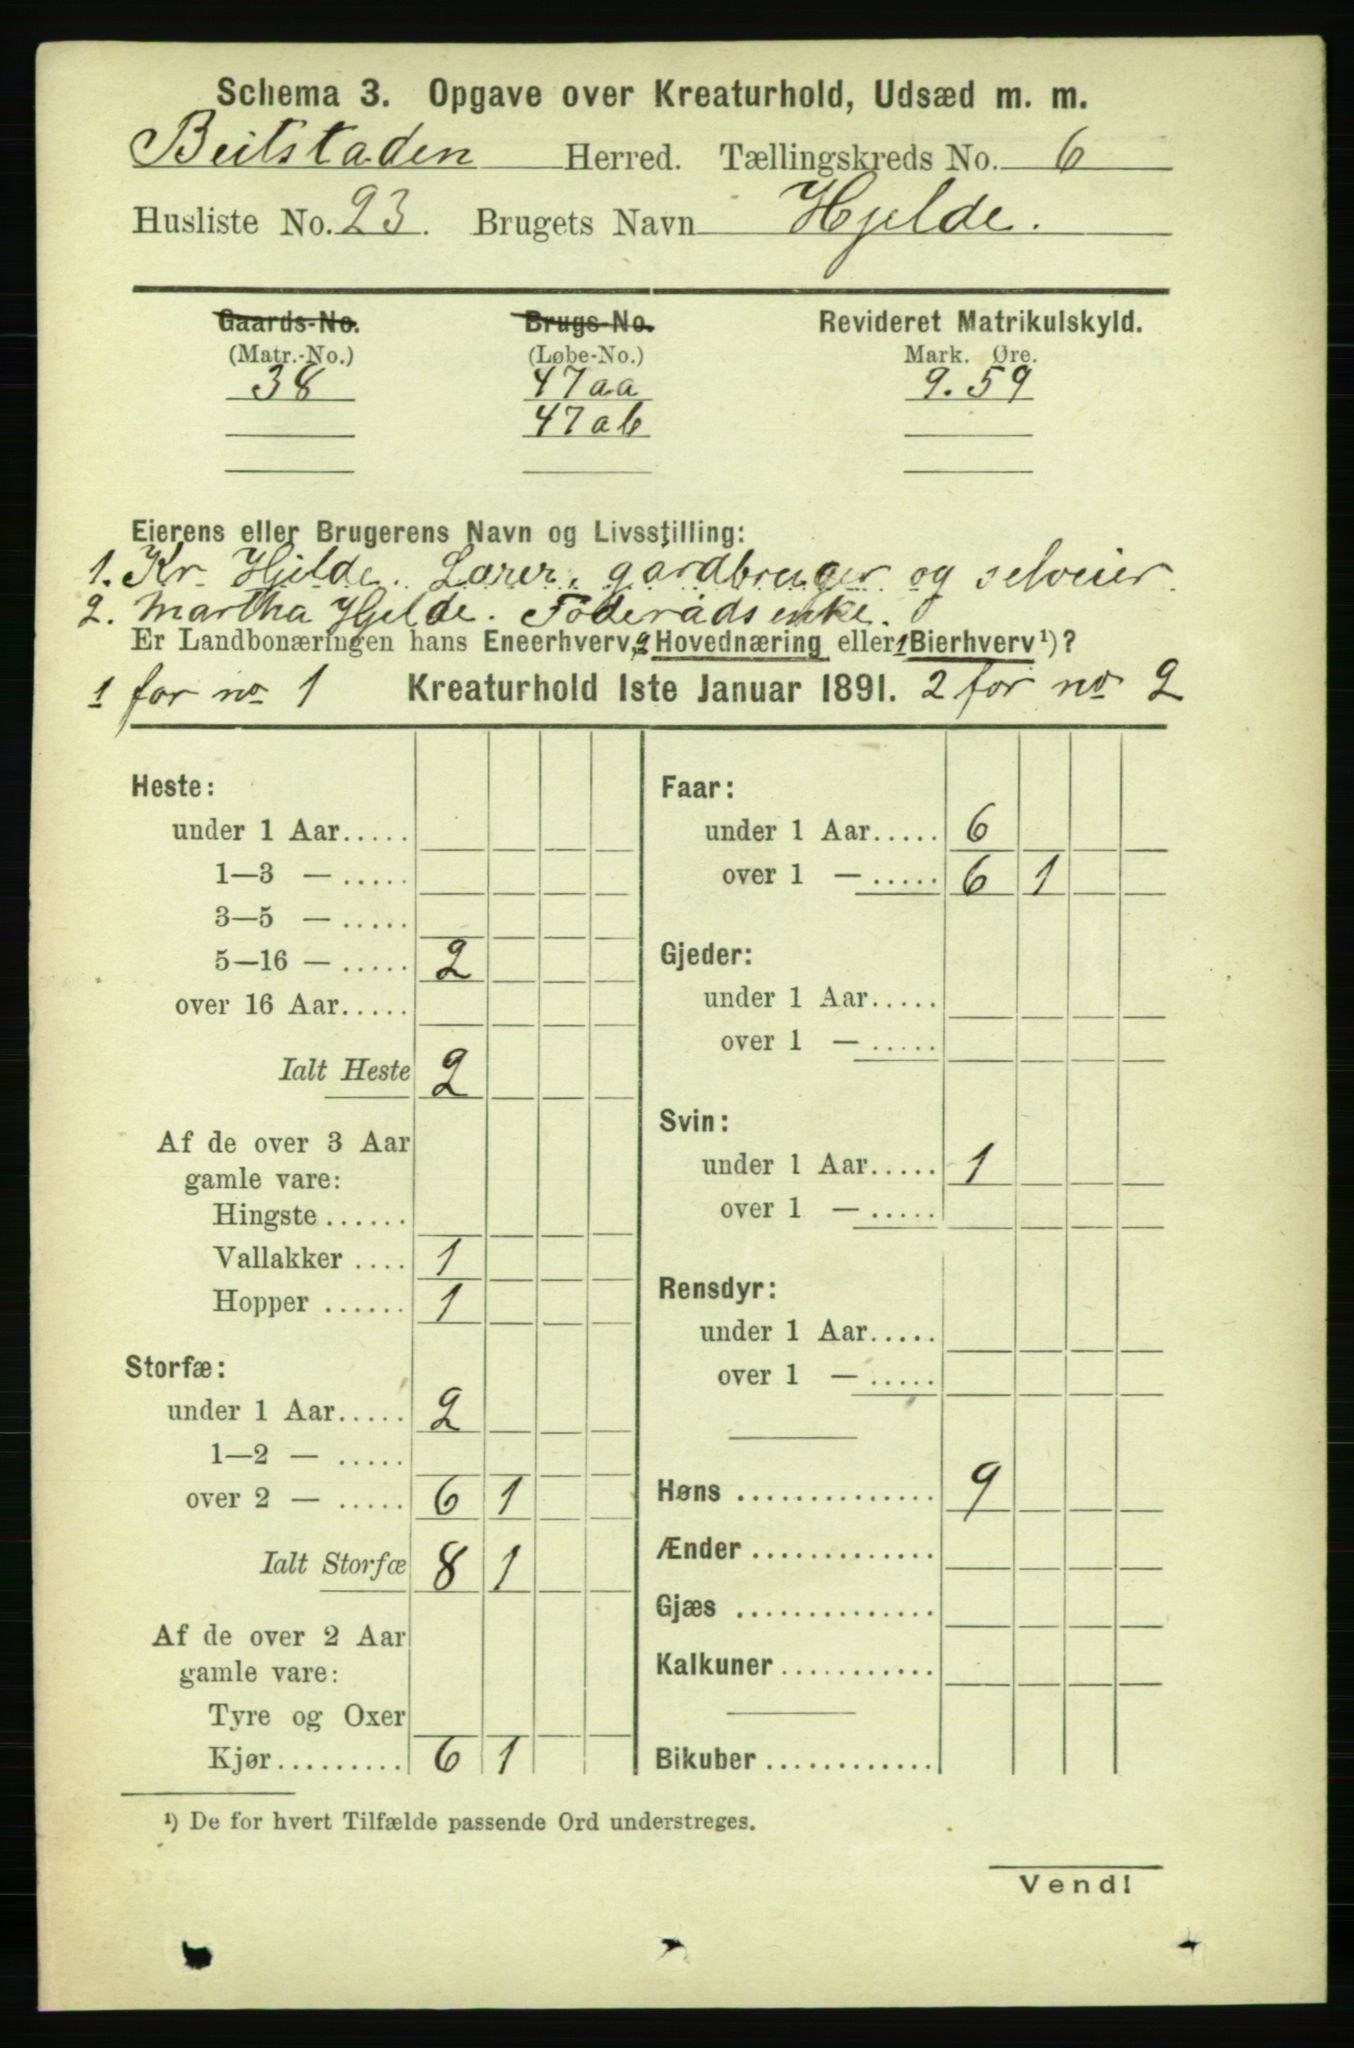 Schema 3. Opgave over Kreaturhold, Udsæd m. m.
Beitstaden Herred. Tællingskreds No. 6
Husliste No. 23. Brugets Navn Hjelde.
Gaards-No. Brugs-No. Revideret Matrikulskyld.
(Matr.-No.) (Løbe-No.) Mark. Øre.
38 47aa 9.59
47ab
Eierens eller Brugerens Navn og Livsstilling:
1. Kr. Hjelde. Lærer, gardbruger og selveier.
2. Martha Hjelde. Føderådsenke.
Er Landbonæringen hans Eneerhverv, 2 Hovednæring eller 1 Bierhverv¹)?
1 for no 1 Kreaturhold 1ste Januar 1891. 2 for no 2
Heste:
under 1 Aar.....
1—3 — .....
3—5 — .....
5—16 — ..... 2
over 16 Aar.....
Ialt Heste 2
Af de over 3 Aar
gamle vare:
Hingste......
Vallakker .... 1
Hopper ...... 1
Storfæ:
under 1 Aar..... 2
1—2 — .....
over 2 — ..... 6 1
Ialt Storfæ 8 1
Af de over 2 Aar
gamle vare:
Tyre og Oxer
Kjør......... 6 1
Faar:
under 1 Aar..... 6
over 1 — ..... 6 1
Gjeder:
under 1 Aar.....
over 1 — .....
Svin:
under 1 Aar..... 1
over 1 — .....
Rensdyr:
under 1 Aar.....
over 1 — .....
Høns .............. 9
Ænder .............
Gjæs ..............
Kalkuner...........
Bikuber.............
¹) De for hvert Tilfælde passende Ord understreges.
Vend!